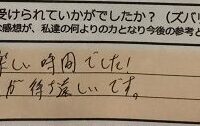 受けられていかがでしたか？（ズバリ
な感想が、私達の何よりの力となり今後の参考と
楽しい時間でした！
が待ち遠しいです。